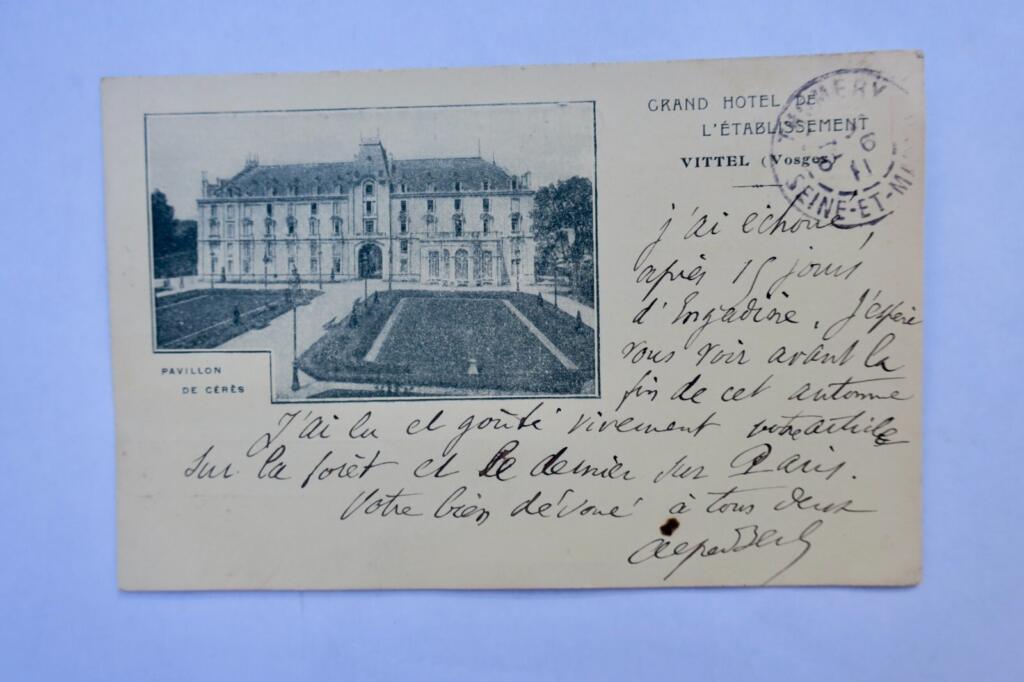 GRAND HOTEL DE
L'ÉTABLISSEMENT
VITTEL (Vosges)
THOMERY
SEINE-ET-M
PAVILLON
DE CÉRÈS
j'ai échoué,
après 15 jours
d'Engadine, j'espère
vous voir avant la
fin de cet automne
J'ai lu et goûté vivement votre article
sur la forêt et le dernier sur Paris.
Votre bien dévoué à tous deux